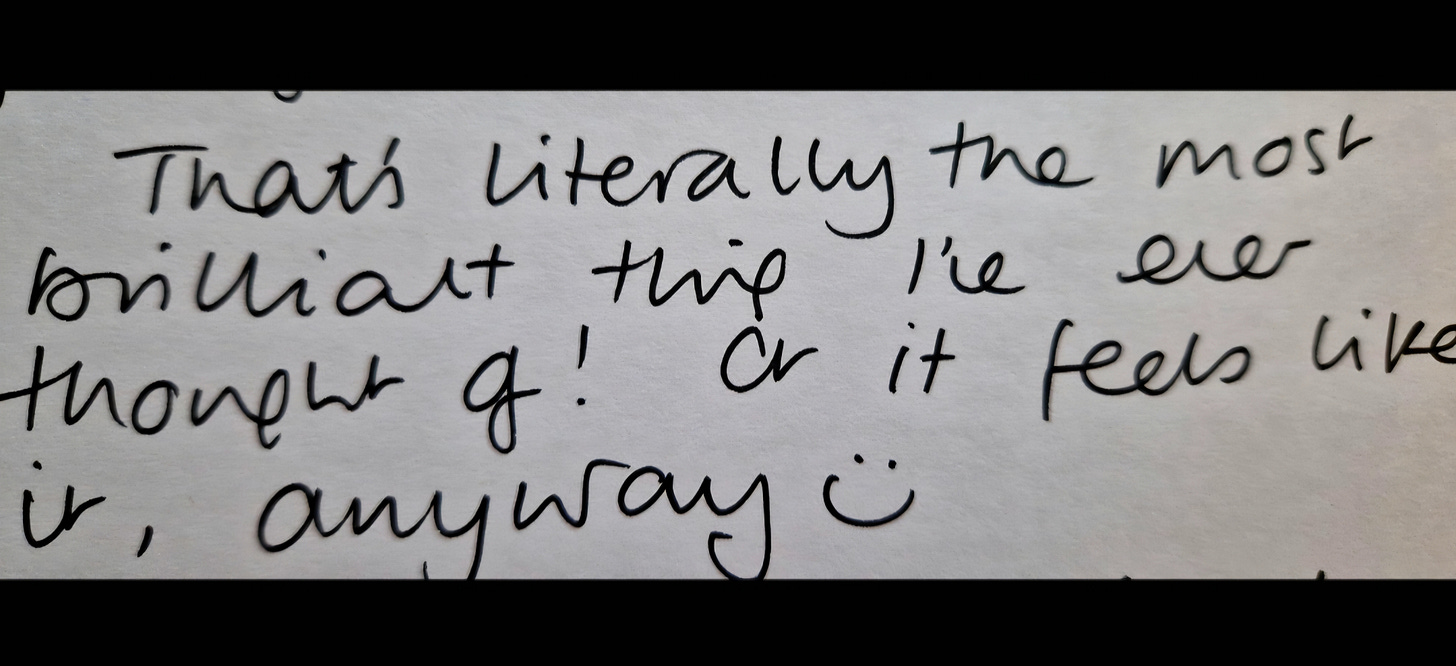 That's literally the most
brilliant thing I've ever
thought of! Or it feels like
it, anyway ☺